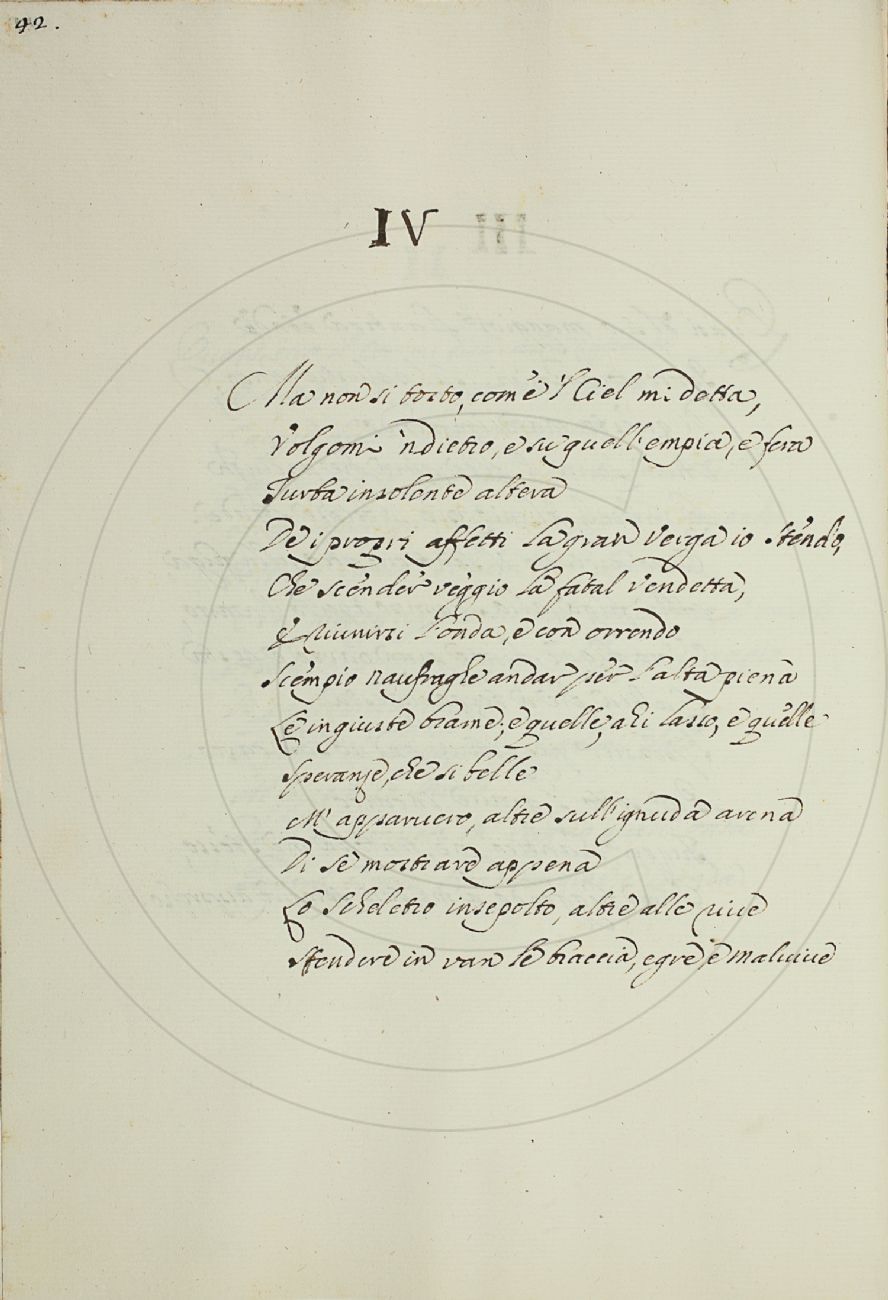 42.
IV
Ma non si tosto, com'è 'l Ciel mi detta,
Volgomi 'ndietro, e su quell'empia, e fera
Turba insolente altera
De i propri affetti la gran Verga io stendo,
Che scender veggio la fatal Vendetta,
E riunirsi l'onda, e con orrendo
Scempio naufraghe andar per l'alta piena
Le ingiuste brame; e quelle, ahi lasso, e quelle
Speranze, che si belle
M'apparuero, altre sull'ignuda arena
Di se mostrare appena
Lo scheletro insepolto, altre alle riue
Stendere in van le braccia, egre, e maluiue